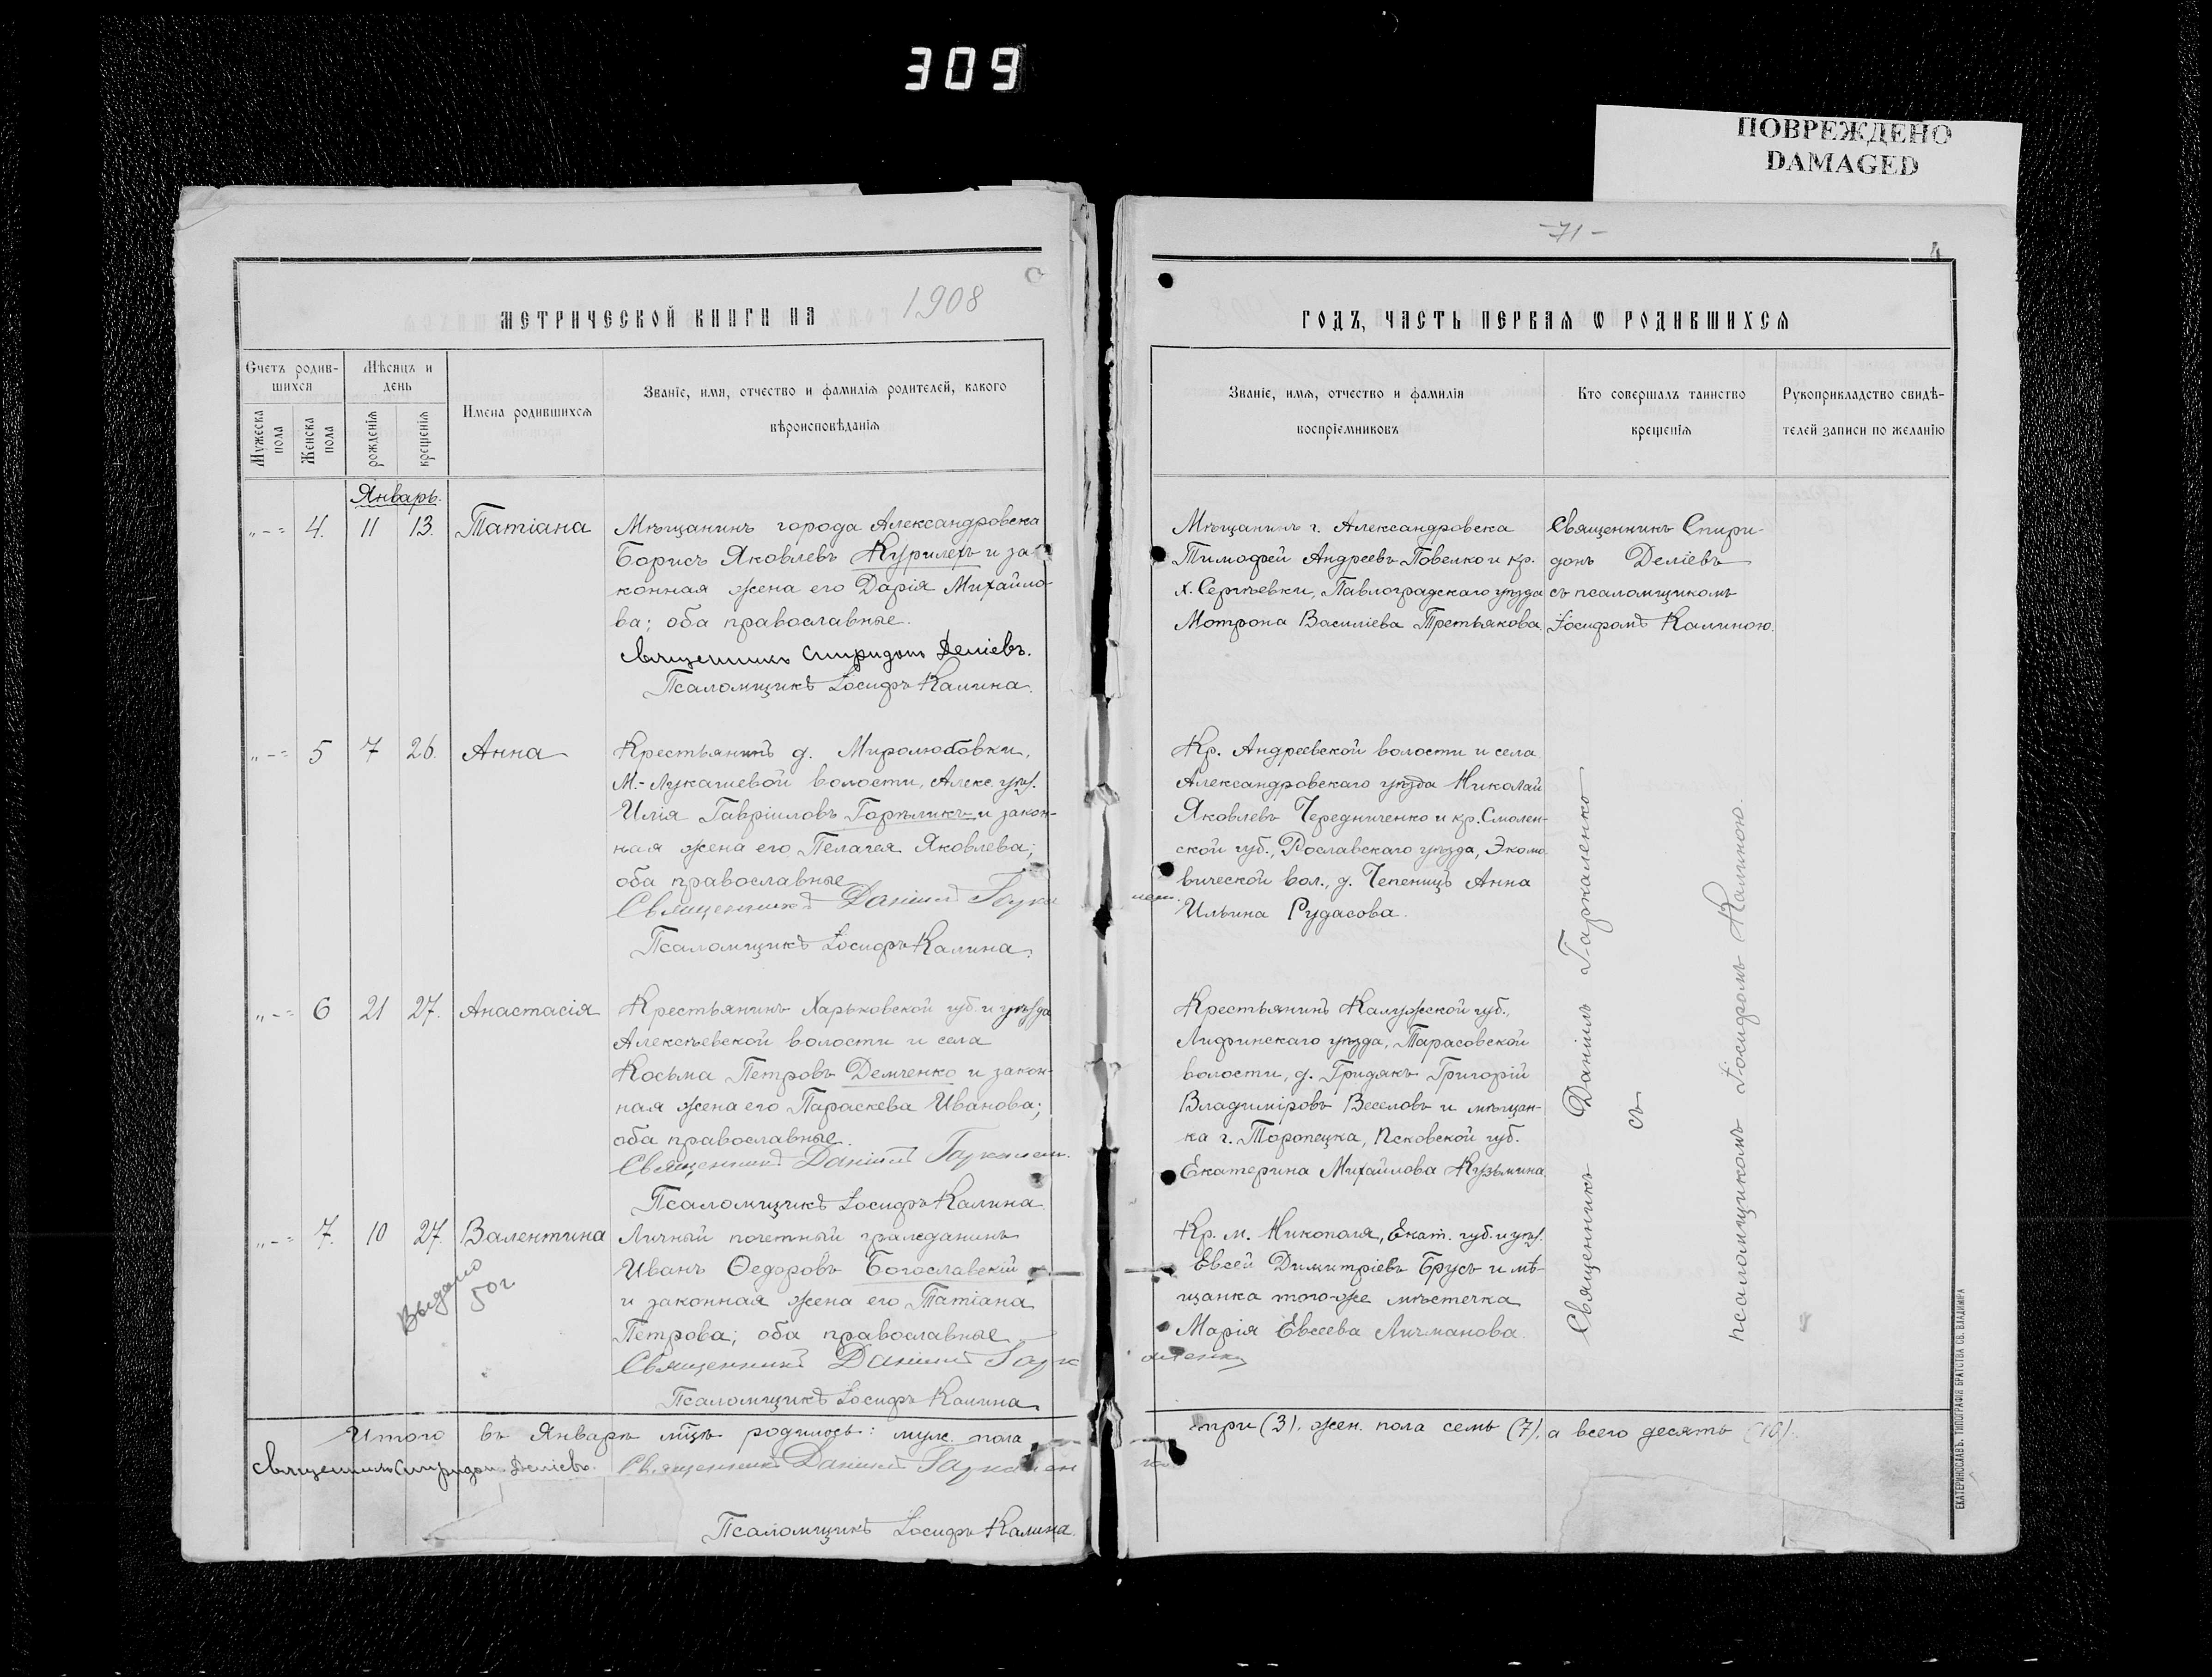 309
ПОВРЕЖДЕНО
DAMAGED
МЕТРИЧЕСКОЙ КНИГИ НА 1908
Счетъ родив-
шихся
Мѣсяцъ и
день
Мужеска
пола
Женска
пола
рожденія
крещенія
Имена родившихся
Званіе, имя, отчество и фамилія родителей, какого
вѣроисповѣданія
Январь.
"-" 4. 11 13. Татіана
Мѣщанинъ города Александровска
Борисъ Яковлевъ Курилехъ и за-
конная жена его Дарія Михайло-
ва; оба православные.
Священникъ Спиридонъ Деліевъ.
Псаломщикъ Іосифъ Калина.
"-" 5 7 26. Анна
Крестьянинъ д. Миролюбовки,
М.-Лукашевой волости, Алекс. уѣз.
Илія Гавріиловъ Горѣликъ и закон-
ная жена его Пелагея Яковлева;
оба православные
Священникъ Даніилъ Гарка
лен.
Псаломщикъ Іосифъ Калина.
"-" 6 21 27. Анастасія
Крестьянинъ Харьковской губ. и уѣзда
Алексѣевской волости и села
Косьма Петровъ Демченко и закон-
ная жена его Параскева Иванова;
оба православные.
Священникъ Даніилъ Гаркален.
Псаломщикъ Іосифъ Калина.
"-" 7. 10 27. Валентина
Выдано
50г
Личный почетный гражданинъ
Иванъ Ѳедоровъ Богославскій
и законная жена его Татіана
Петрова; оба православные.
Священникъ Даніилъ Гарк
аленко
Псаломщикъ Іосифъ Калина.
Итого въ Январѣ м-цѣ родилось: муж. пола
Священникъ Спиридонъ Деліевъ. Священникъ Даніилъ Гаркален
ко
Псаломщикъ Іосифъ Калина.
-71-
4
ГОДЪ, ЧАСТЬ ПЕРВАЯ Ѡ РОДИВШИХСЯ
Званіе, имя, отчество и фамилія
воспріемниковъ
Кто совершалъ таинство
крещенія
Рукоприкладство свидѣ-
телей записи по желанію
Мѣщанинъ г. Александровска
Тимофей Андреевъ Повелко и кр.
х. Сергѣевки, Павлоградскаго уѣзда
Мотрона Василіева Третьякова.
Священникъ Спири-
донъ Деліевъ
съ псаломщикомъ
Іосифомъ Калиною.
Кр. Андреевской волости и села
Александровскаго уѣзда Николай
Яковлевъ Чередниченко и кр. Смолен-
ской губ., Рославскаго уѣзда, Экомо-
вической вол., д. Чепеницъ Анна
Ильина Рудасова.
Крестьянинъ Калужской губ.,
Лифинскаго уѣзда, Тарасовской
волости, д. Гридякъ Григорій
Владиміровъ Веселовъ и мѣщан-
ка г. Торопецка, Псковской губ.
Екатерина Михайлова Кузьмина.
Кр. м. Никополя, Екат. губ. и уѣз.
Евсей Димитріевъ Брусъ и мѣ-
щанка того-же мѣстечка
Марія Евсеева Личманова.
Священникъ Даніилъ Гаркаленко
съ
псаломщикомъ Іосифомъ Калиною.
три (3). жен. пола семь (7), а всего десять (10).
ЕКАТЕРИНОСЛАВЪ. ТИПОГРАФІЯ БРАТСТВА СВ. ВЛАДИМІРА